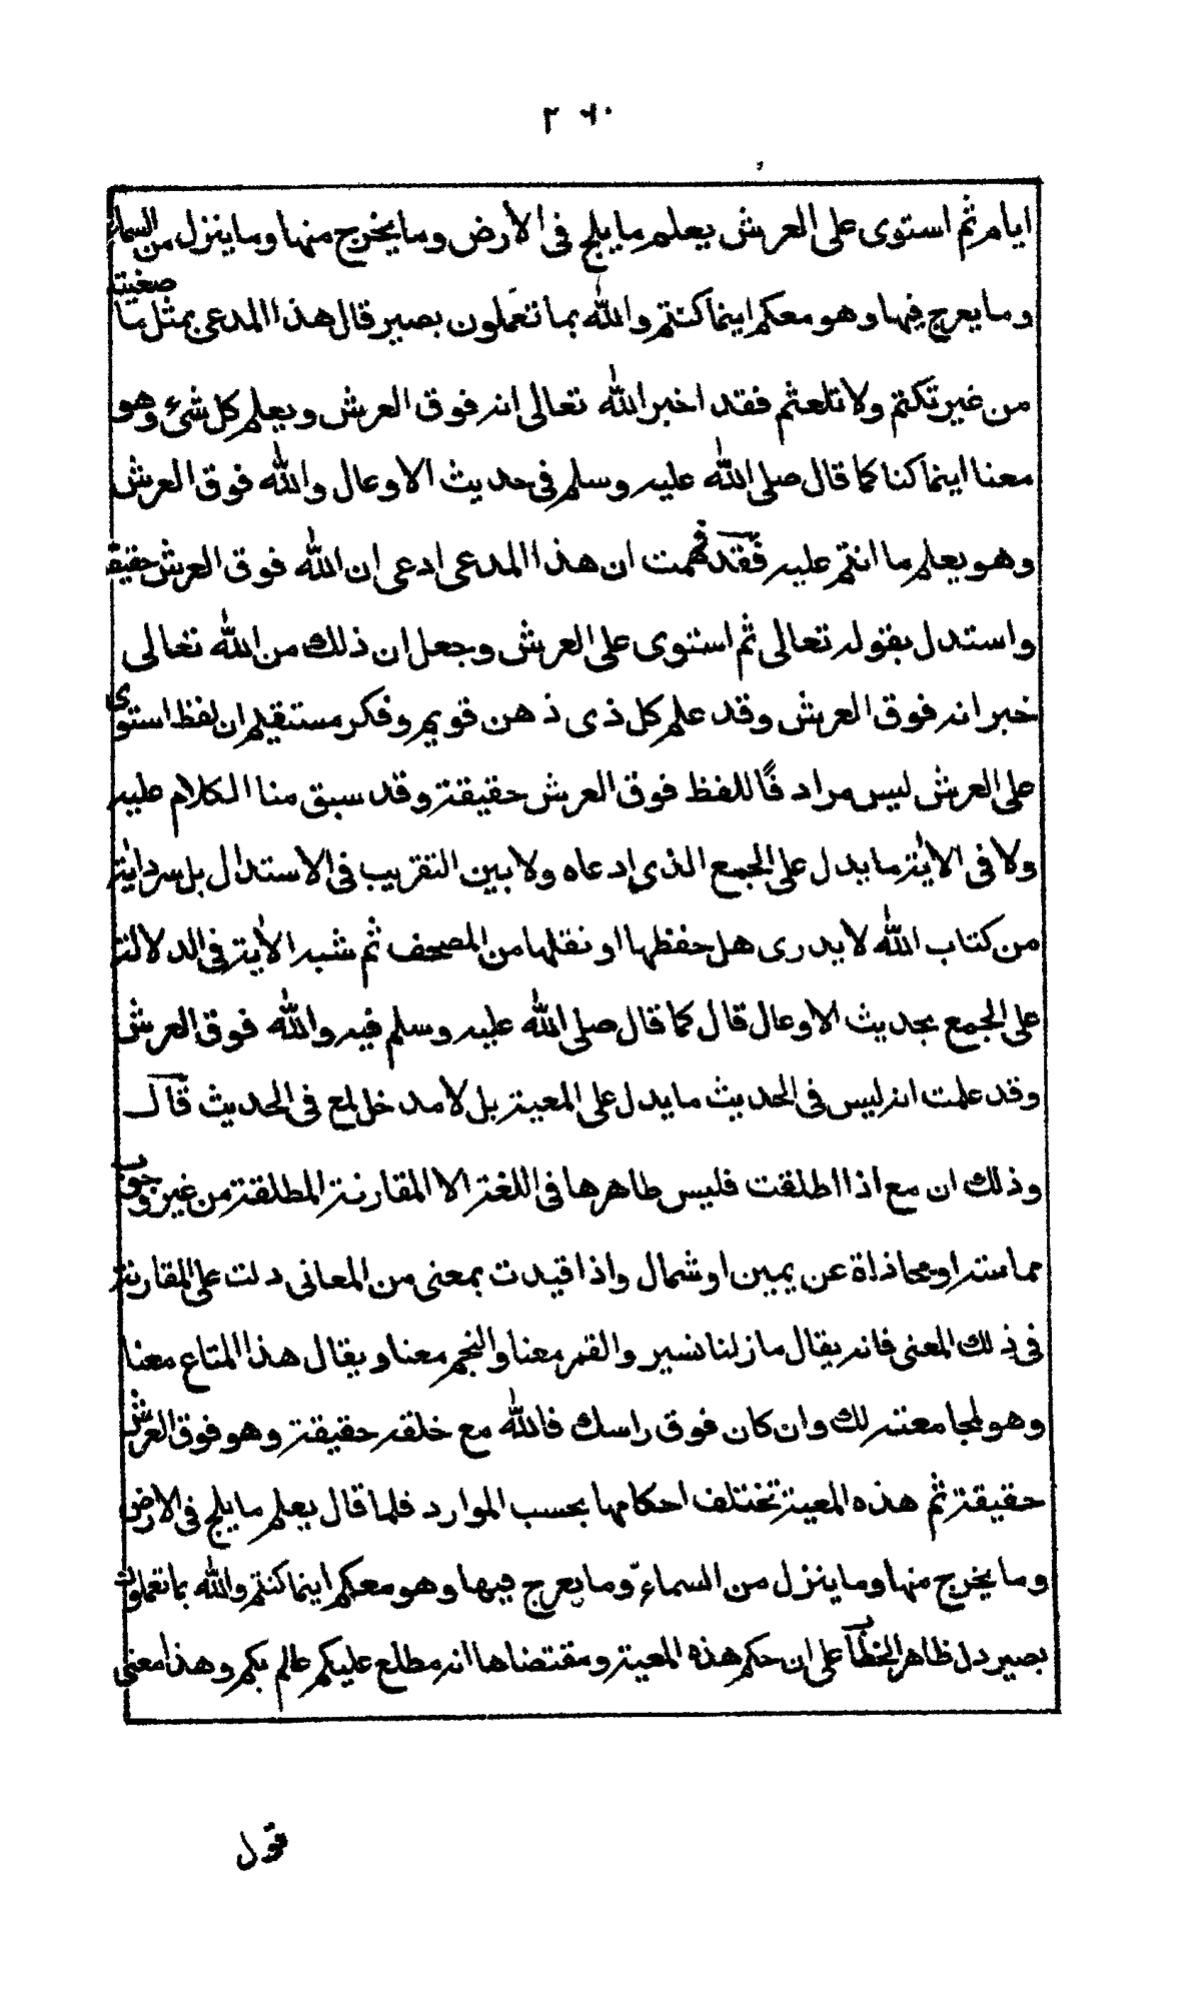 ٢٦٠
ايام ثم استوى على العرش يعلم مايلج فى الارض ومايخرج منها وماينزل من السماء
ومايعرج فيها وهو معكم اينما كنتم والله بما تعملون بصير قال هذا المدعى بمثل ما صغيته
من غير تكتم ولا تلعثم فقد اخبر الله تعالى انه فوق العرش ويعلم كل شئ وهو
معنا اينما كنا كما قال صلى الله عليه وسلم فى حديث الاوعال والله فوق العرش
وهو يعلم ما انتم عليه فقد فهمت ان هذا المدعى ادعى ان الله فوق العرش حقيقة
واستدل بقوله تعالى ثم استوى على العرش وجعل ان ذلك من الله تعالى
خبر انه فوق العرش وقد علم كل ذى ذهن قويم وفكر مستقيم ان لفظ استوى
على العرش ليس مرادفًا للفظ فوق العرش حقيقة وقد سبق منا الكلام عليه
ولا فى الاية مايدل على الجمع الذى ادعاه ولا بين التقريب فى الاستدلال بل سرد اية
من كتاب الله لا يدرى هل حفظها او نقلها من المصحف ثم شبه الاية فى الدلالة
على الجمع بحديث الاوعال قال كما قال صلى الله عليه وسلم فيه والله فوق العرش
وقد علمت انه ليس فى الحديث مايدل على المعية بل لا مدخل لمع فى الحديث قال
وذلك ان مع اذا اطلقت فليس ظاهرها فى اللغة الا المقارنة المطلقة من غير وجوب
مماسة او محاذاة عن يمين او شمال واذا قيدت بمعنى من المعانى دلت على المقارنة
فى ذلك المعنى فانه يقال مازلنا نسير والقمر معنا والنجم معنا ويقال هذا المتاع معنا
وهو لمجامعته لك وان كان فوق راسك فالله مع خلقه حقيقة وهو فوق العرش
حقيقة ثم هذه المعية تختلف احكامها بحسب الموارد فلما قال يعلم مايلج فى الارض
ومايخرج منها وماينزل من السماء ومايعرج فيها وهو معكم اينما كنتم والله بما تعملون
بصير دل ظاهر الخطاب على ان حكم هذه المعية ومقتضاها انه مطلع عليكم عالم بكم وهذا معنى
قول